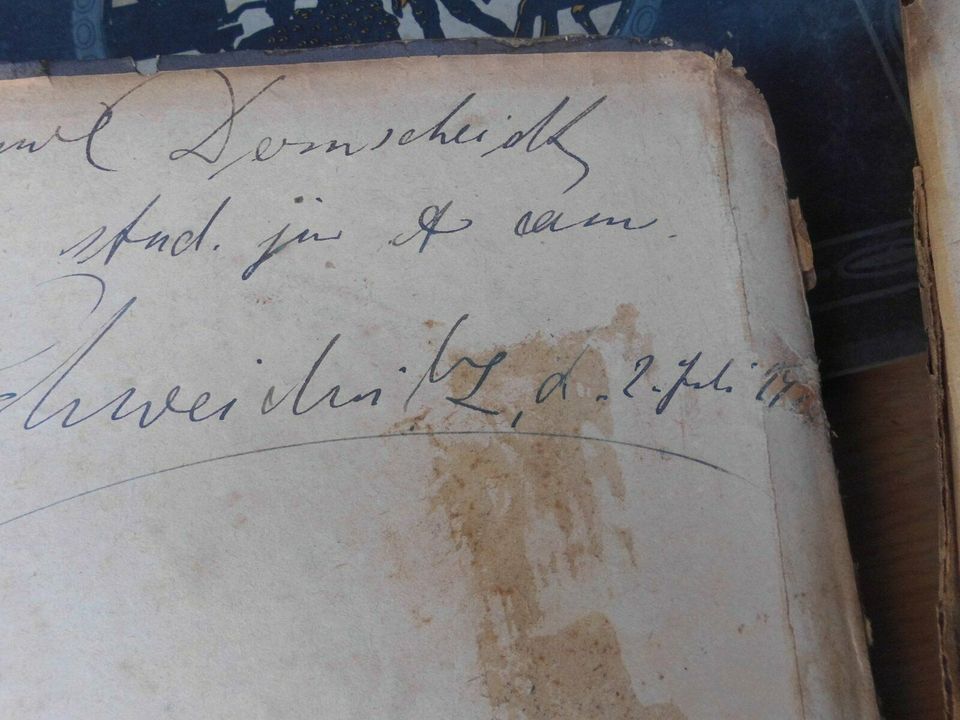 Dornscheidt
stud. jur et cam.
Schweidnitz, d. 2. Juli 19